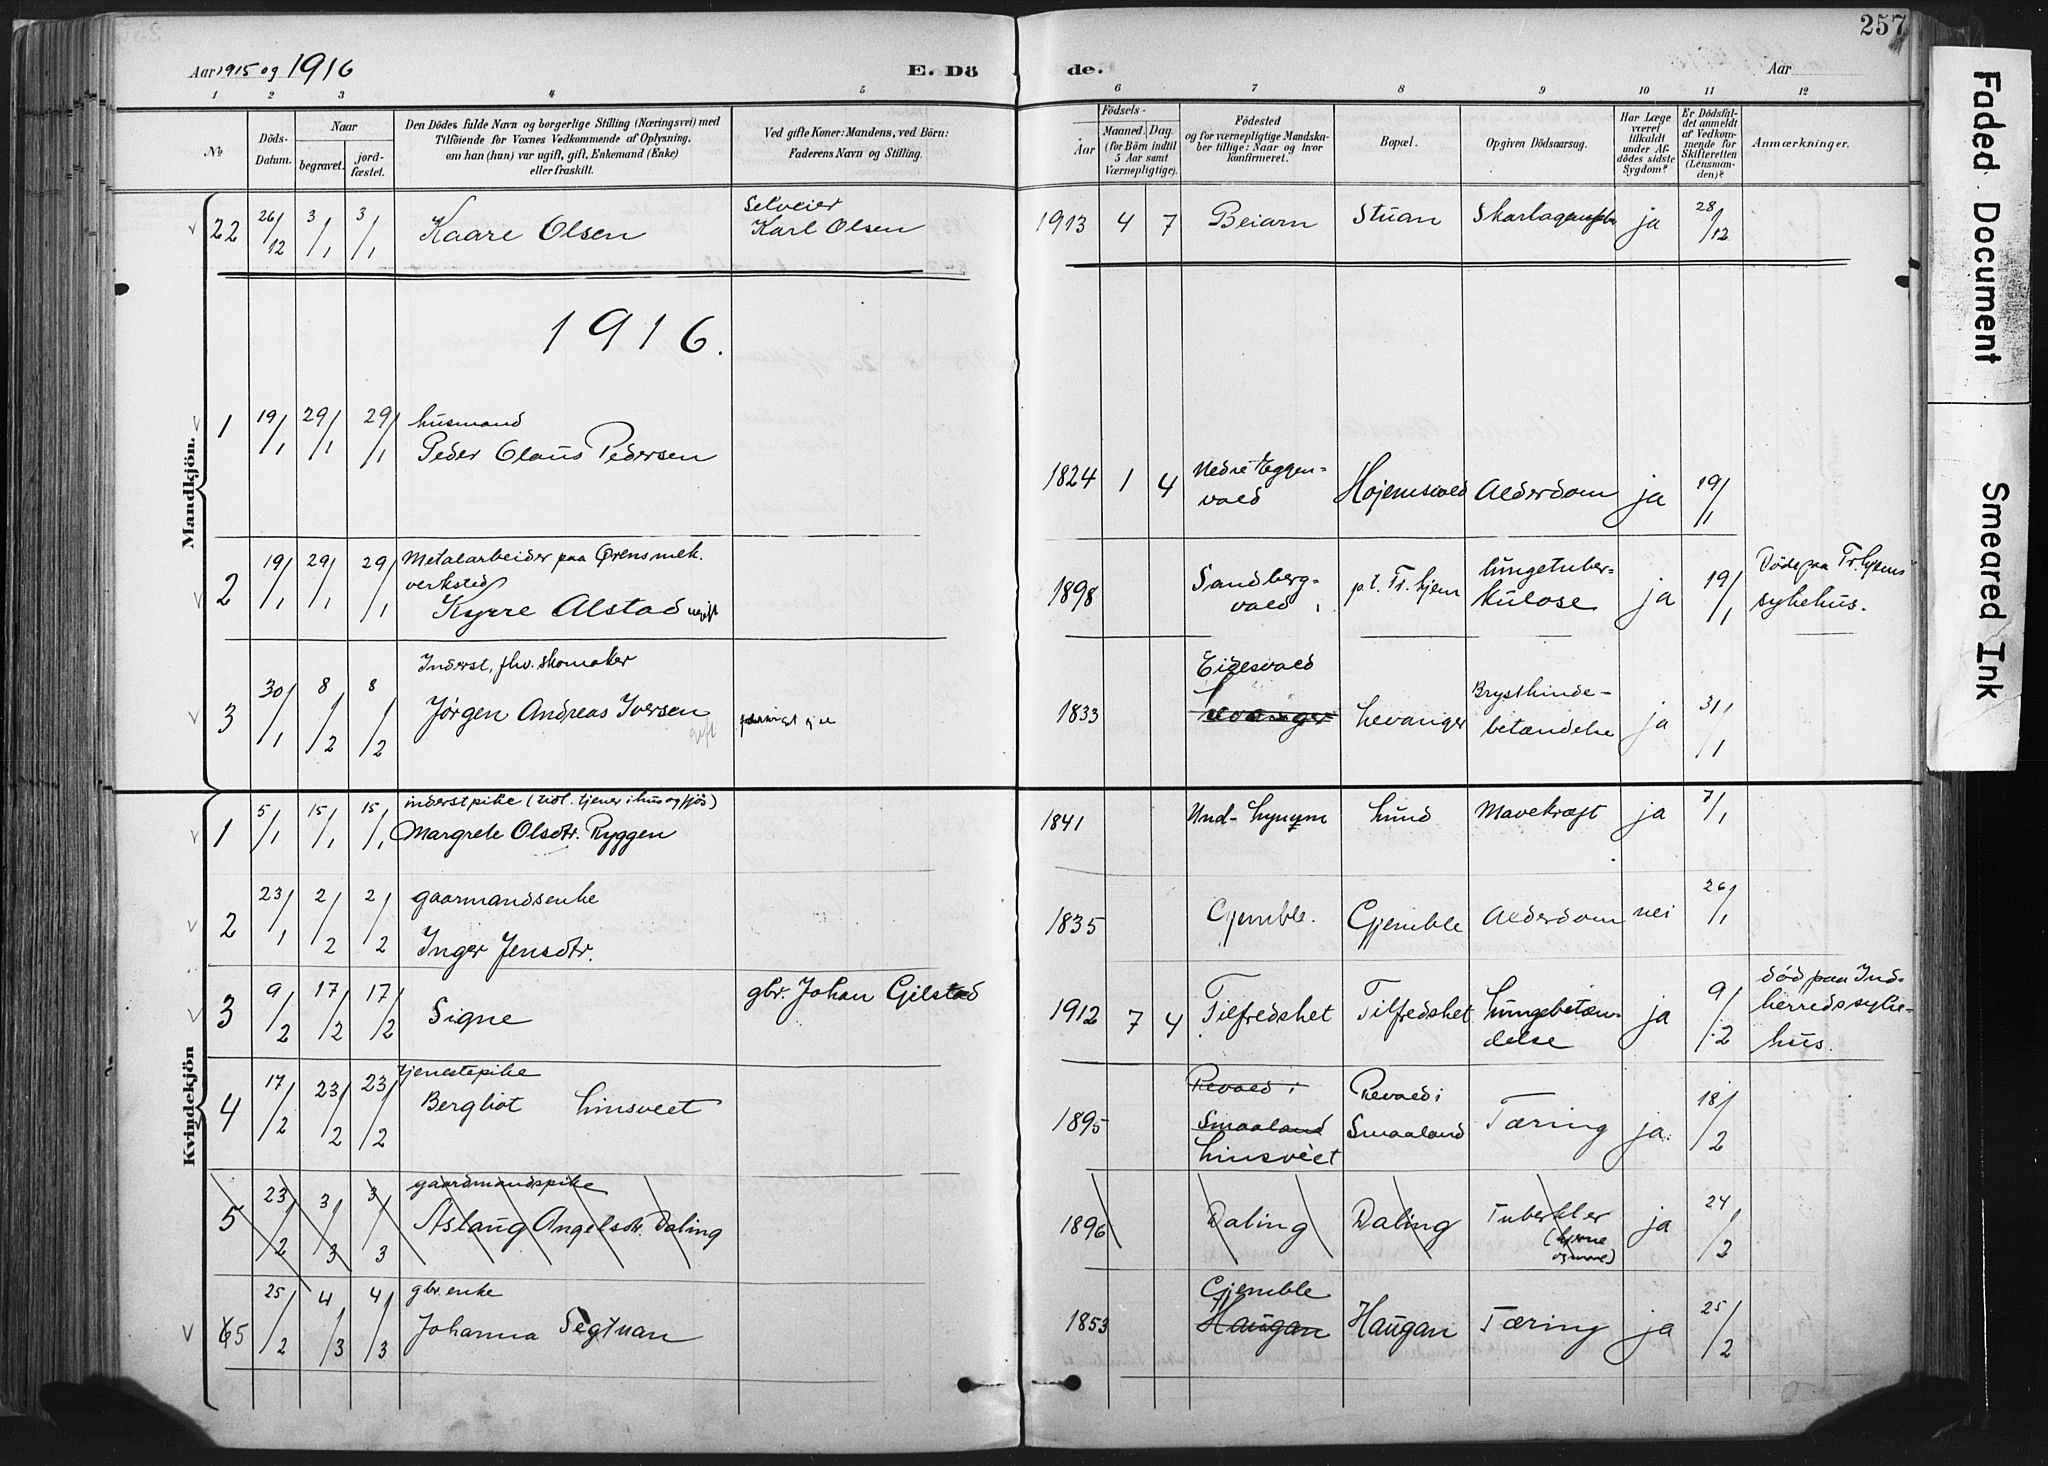 257
Aar 1915 og 1916 E. Dö de. Aar
1 2 3 4 5 6 7 8 9 10 11 12
No Döds-Datum. Naar begravet. jord-fæstet. Den Dödes fulde Navn og borgerlige Stilling (Næringsvei) med Tilföiende for Voxnes Vedkommende af Oplysning, om han (hun) var ugift, gift, Enkemand (Enke) eller fraskilt. Ved gifte Koner: Mandens, ved Börn: Faderens Navn og Stilling. Födsels- Aar Maaned. (for Börn indtil 5 Aar samt Værnepligtige). Dag. Födested og for værnepligtige Mandskaber tillige: Naar og hvor konfirmeret. Bopæl. Opgiven Dödsaarsag. Har Læge været tilkaldt under Afdödes sidste Sygdom? Er Dödsfaldet anmeldt af Vedkommende for Skifteretten (Lensmanden)? Anmærkninger.
Mandkjön.
22 26/12 3/1 3/1 Kaare Olsen Selveier Karl Olsen 1913 4 7 Beiarn Stuan ja 28/12
1916.
1 19/1 29/1 29/1 husmand Peder Olaus Pedersen 1824 1 4 Nedre Eggenvald Hojemsvald Alderdom ja 19/1
2 19/1 29/1 29/1 Metalarbeider paa Ørens mek. verksted Kyrre Alstad ugift 1898 Sandbergvald p.t. Tr.hjem lungetuberkulose ja 19/1 Døde paa Tr.hjems sykehus.
3 30/1 8/2 8/2 Inderst, fhv. skomaker Jørgen Andreas Iversen gift 1833 Eidesvald Levanger Levanger Brysthindebetændelse ja 31/1
Kvindekjön
1 5/1 15/1 15/1 inderstpike (tidl. tjener i hus og fjøs) Margrete Olsdtr. Ryggen 1841 Lund Mavekræft ja 7/1
2 23/1 2/2 2/2 gaarmandsenke Inger Jensdtr. 1835 Gjemble. Gjemble Alderdom nei 26/1
3 9/2 17/2 17/2 Signe gbr. Johan Gilstad 1912 7 4 Tilfredshet Tilfredshet Lungebetændelse ja 9/2 død paa Indherreds sykehus.
4 17/2 23/2 23/2 tjenestepike Bergliot Linsveet 1895 Revald i Smaaland Linsveet Revald i Smaaland Tæring ja. 18/2
5 23/2 3/3 3/3 gaardmandspike Aslaug Angelsdtr. Daling 1896 Daling Daling Tuberkler ja 24/2
65 25/2 4/3 4/3 gbr. enke Johanna Segtnan 1853 Gjemble Haugan Haugan Tæring ja 25/2
Faded Document
Smeared Ink